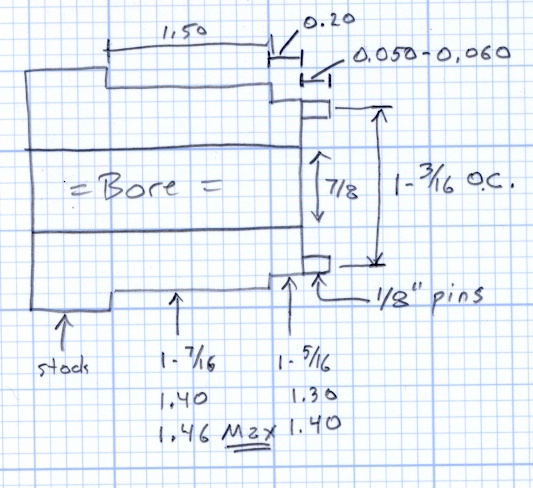 1.50
0.20
0.050-0.060
= Bore =
7/8
1-3/16 O.C.
1/8" pins
stock
1-7/16
1.40
1.46 Max
1-5/16
1.30
1.40